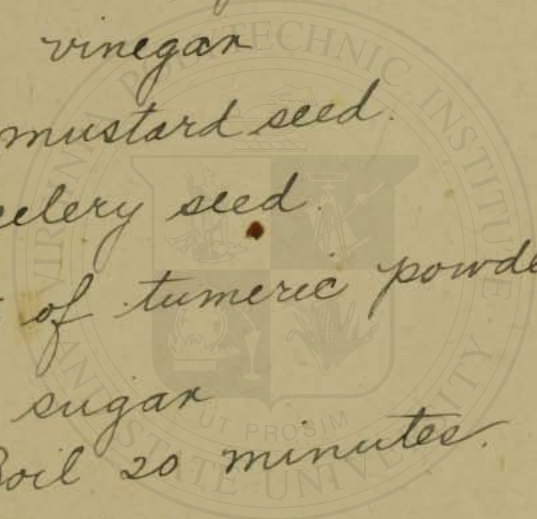 vinegar
mustard seed.
celery seed.
of tumeric powde
sugar
Boil 20 minutes.
VIRGINIA POLYTECHNIC INSTITUTE
AND STATE UNIVERSITY
UT PROSIM